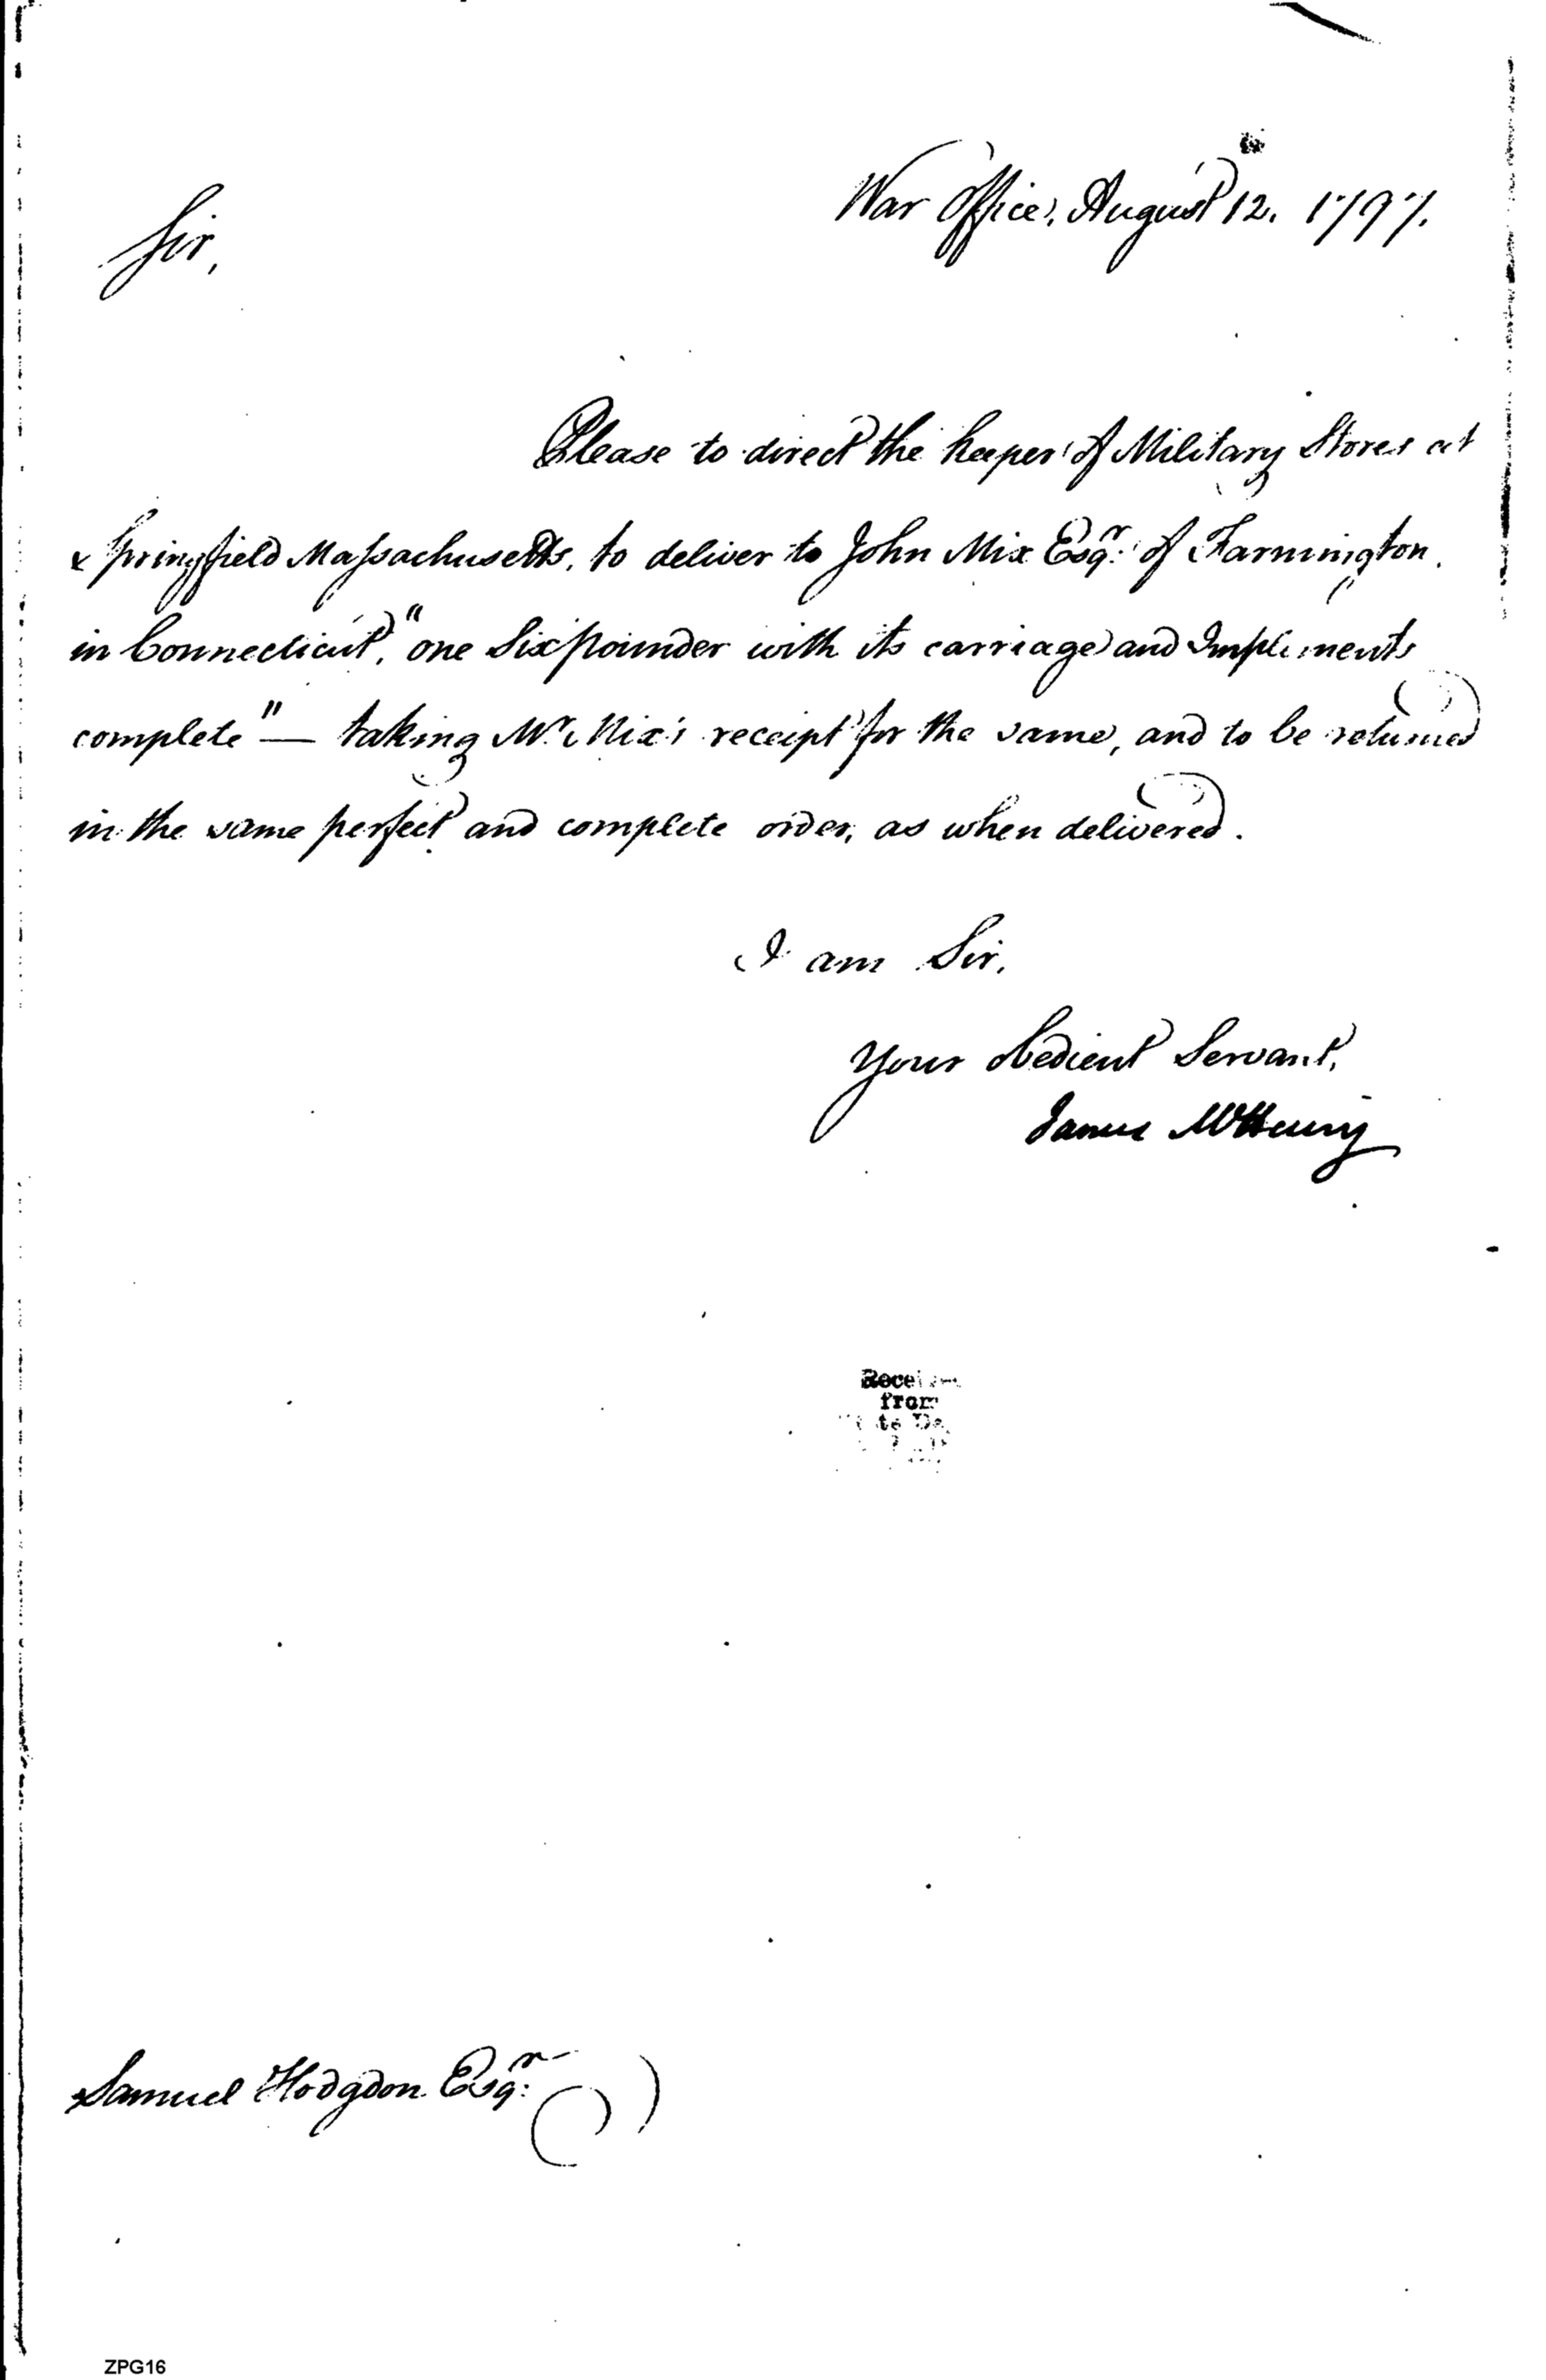 War Office, August 12. 1797.
Sir,
Please to direct the keeper of Military Stores at
Springfield Massachusetts, to deliver to John Mix Esqr. of Farmington.
in Connecticut, "one Six pounder with its carriage and Impliments
complete" — taking Mr. Mix's receipt for the same, and to be returned
in the same perfect and complete order, as when delivered.
I am Sir,
Your obedient Servant,
James McHenry
Received
from
Samuel Hodgdon Esqr:
ZPG16